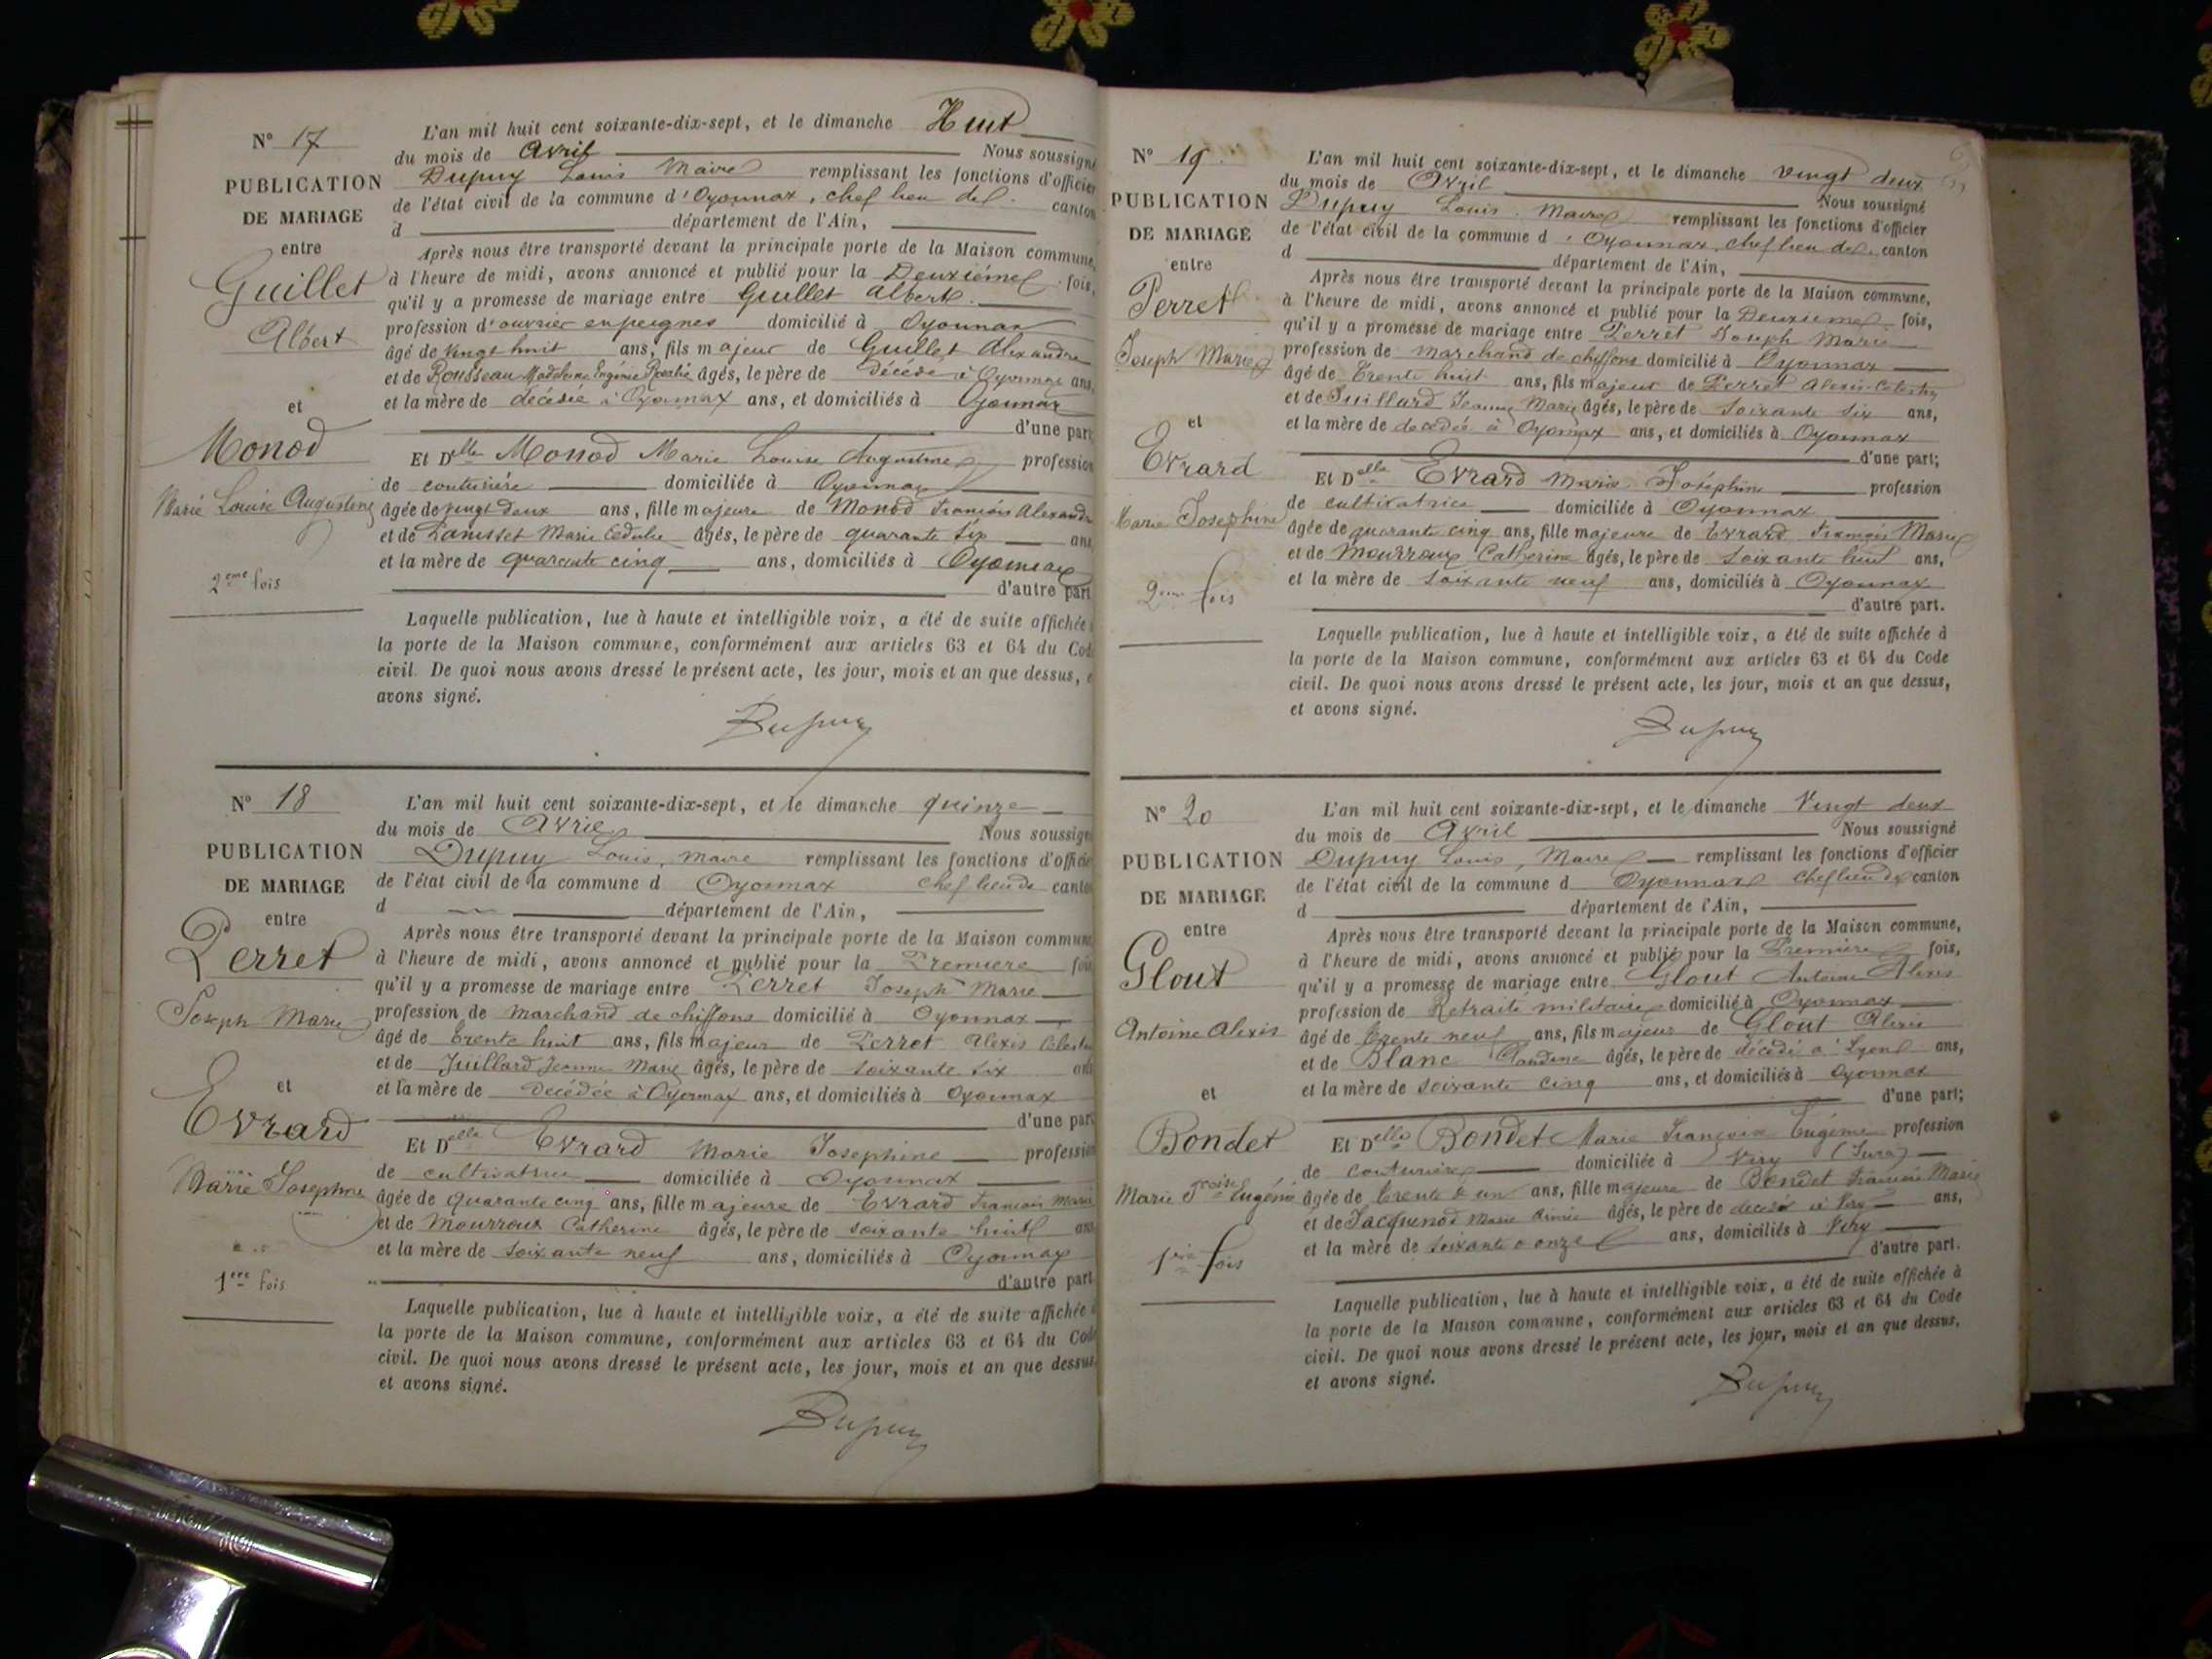 N° 17
PUBLICATION
DE MARIAGE
entre
Guillet
Albert
et
Monod
Marie Louise Augustine
2eme fois
L'an mil huit cent soixante-dix-sept, et le dimanche Huit
du mois de Avril Nous soussigné
Dupuy Louis Maire remplissant les fonctions d'officier
de l'état civil de la commune d'Oyonnax, chef lieu de canton
d département de l'Ain,
Après nous être transporté devant la principale porte de la Maison commune,
à l'heure de midi, avons annoncé et publié pour la Deuxième fois,
qu'il y a promesse de mariage entre Guillet Albert
profession d'ouvrier en peignes domicilié à Oyonnax
âgé de vingt huit ans, fils majeur de Guillet Alexandre
et de Rousseau Madeleine Eugénie Rosalie âgés, le père de décédé à Oyonnax ans,
et la mère de décédée à Oyonnax ans, et domiciliés à Oyonnax
d'une part
Et Delle Monod Marie Louise Augustine profession
de couturière domiciliée à Oyonnax
âgée de vingt deux ans, fille majeure de Monod François Alexandre
et de Marie âgés, le père de quarante six ans
et la mère de quarante cinq ans, domiciliés à Oyonnax
d'autre part
Laquelle publication, lue à haute et intelligible voix, a été de suite affichée
la porte de la Maison commune, conformément aux articles 63 et 64 du Code
civil. De quoi nous avons dressé le présent acte, les jour, mois et an que dessus, e
avons signé.
Dupuy
N° 18
PUBLICATION
DE MARIAGE
entre
Perret
Joseph Marie
et
Evrard
Marie Josephine
1ere fois
L'an mil huit cent soixante-dix-sept, et le dimanche quinze
du mois de Avril Nous soussigné
Dupuy Louis, maire remplissant les fonctions d'officier
de l'état civil de la commune d Oyonnax chef lieu de canton
d département de l'Ain,
Après nous être transporté devant la principale porte de la Maison commune
à l'heure de midi, avons annoncé et publié pour la Premiere fois
qu'il y a promesse de mariage entre Perret Joseph Marie
profession de marchand de chiffons domicilié à Oyonnax
âgé de trente huit ans, fils majeur de Perret Alexis Célestin
et de Juillard Jeanne Marie âgés, le père de soixante six ans
et la mère de décédée à Oyonnax ans, et domiciliés à Oyonnax
d'une part
Et Delle Evrard Marie Josephine profession
de cultivatrice domiciliée à Oyonnax
âgée de quarante cinq ans, fille majeure de Evrard François Marie
et de Mourroux Catherine âgés, le père de soixante huit ans
et la mère de soixante neuf ans, domiciliés à Oyonnax
d'autre part
Laquelle publication, lue à haute et intelligible voix, a été de suite affichée
la porte de la Maison commune, conformément aux articles 63 et 64 du Code
civil. De quoi nous avons dressé le présent acte, les jour, mois et an que dessus
et avons signé.
Dupuy
N° 19
PUBLICATION
DE MARIAGE
entre
Perret
Joseph Marie
et
Evrard
Marie Josephine
2eme fois
L'an mil huit cent soixante-dix-sept, et le dimanche vingt deux
du mois de Avril Nous soussigné
Dupuy Louis Maire remplissant les fonctions d'officier
de l'état civil de la commune d'Oyonnax chef lieu de canton
d département de l'Ain,
Après nous être transporté devant la principale porte de la Maison commune,
à l'heure de midi, avons annoncé et publié pour la Deuxieme fois,
qu'il y a promesse de mariage entre Perret Joseph Marie
profession de marchand de chiffons domicilié à Oyonnax
âgé de trente huit ans, fils majeur de Perret Alexis Célestin
et de Juillard Jeanne Marie âgés, le père de soixante six ans,
et la mère de décédée à Oyonnax ans, et domiciliés à Oyonnax
d'une part;
Et Delle Evrard Marie Joséphine profession
de cultivatrice domiciliée à Oyonnax
âgée de quarante cinq ans, fille majeure de Evrard François Marie
et de Mourroux Catherine âgés, le père de soixante huit ans,
et la mère de soixante neuf ans, domiciliés à Oyonnax
d'autre part.
Laquelle publication, lue à haute et intelligible voix, a été de suite affichée à
la porte de la Maison commune, conformément aux articles 63 et 64 du Code
civil. De quoi nous avons dressé le présent acte, les jour, mois et an que dessus,
et avons signé.
Dupuy
N° 20
PUBLICATION
DE MARIAGE
entre
Glout
Antoine Alexis
et
Bondet
Marie Froise Eugénie
1ère fois
L'an mil huit cent soixante-dix-sept, et le dimanche Vingt deux
du mois de Avril Nous soussigné
Dupuy Louis, Maire remplissant les fonctions d'officier
de l'état civil de la commune d Oyonnax chef lieu de canton
d département de l'Ain,
Après nous être transporté devant la principale porte de la Maison commune,
à l'heure de midi, avons annoncé et publié pour la Premiere fois,
qu'il y a promesse de mariage entre Glout Antoine Alexis
profession de Retraité militaire domicilié à Oyonnax
âgé de trente neuf ans, fils majeur de Glout Alexis
et de Blanc Claudine âgés, le père de décédé à Lyon ans,
et la mère de soixante cinq ans, et domiciliés à Oyonnax
d'une part;
Et Delle Bondet Marie Françoise Eugénie profession
de couturière domiciliée à Viry (Jura)
âgée de trente & un ans, fille majeure de Bondet François Marie
et de Jacquenod Marie Aimée âgés, le père de décédé à Viry ans,
et la mère de soixante & onze ans, domiciliés à Viry
d'autre part.
Laquelle publication, lue à haute et intelligible voix, a été de suite affichée à
la porte de la Maison commune, conformément aux articles 63 et 64 du Code
civil. De quoi nous avons dressé le présent acte, les jour, mois et an que dessus,
et avons signé.
Dupuy